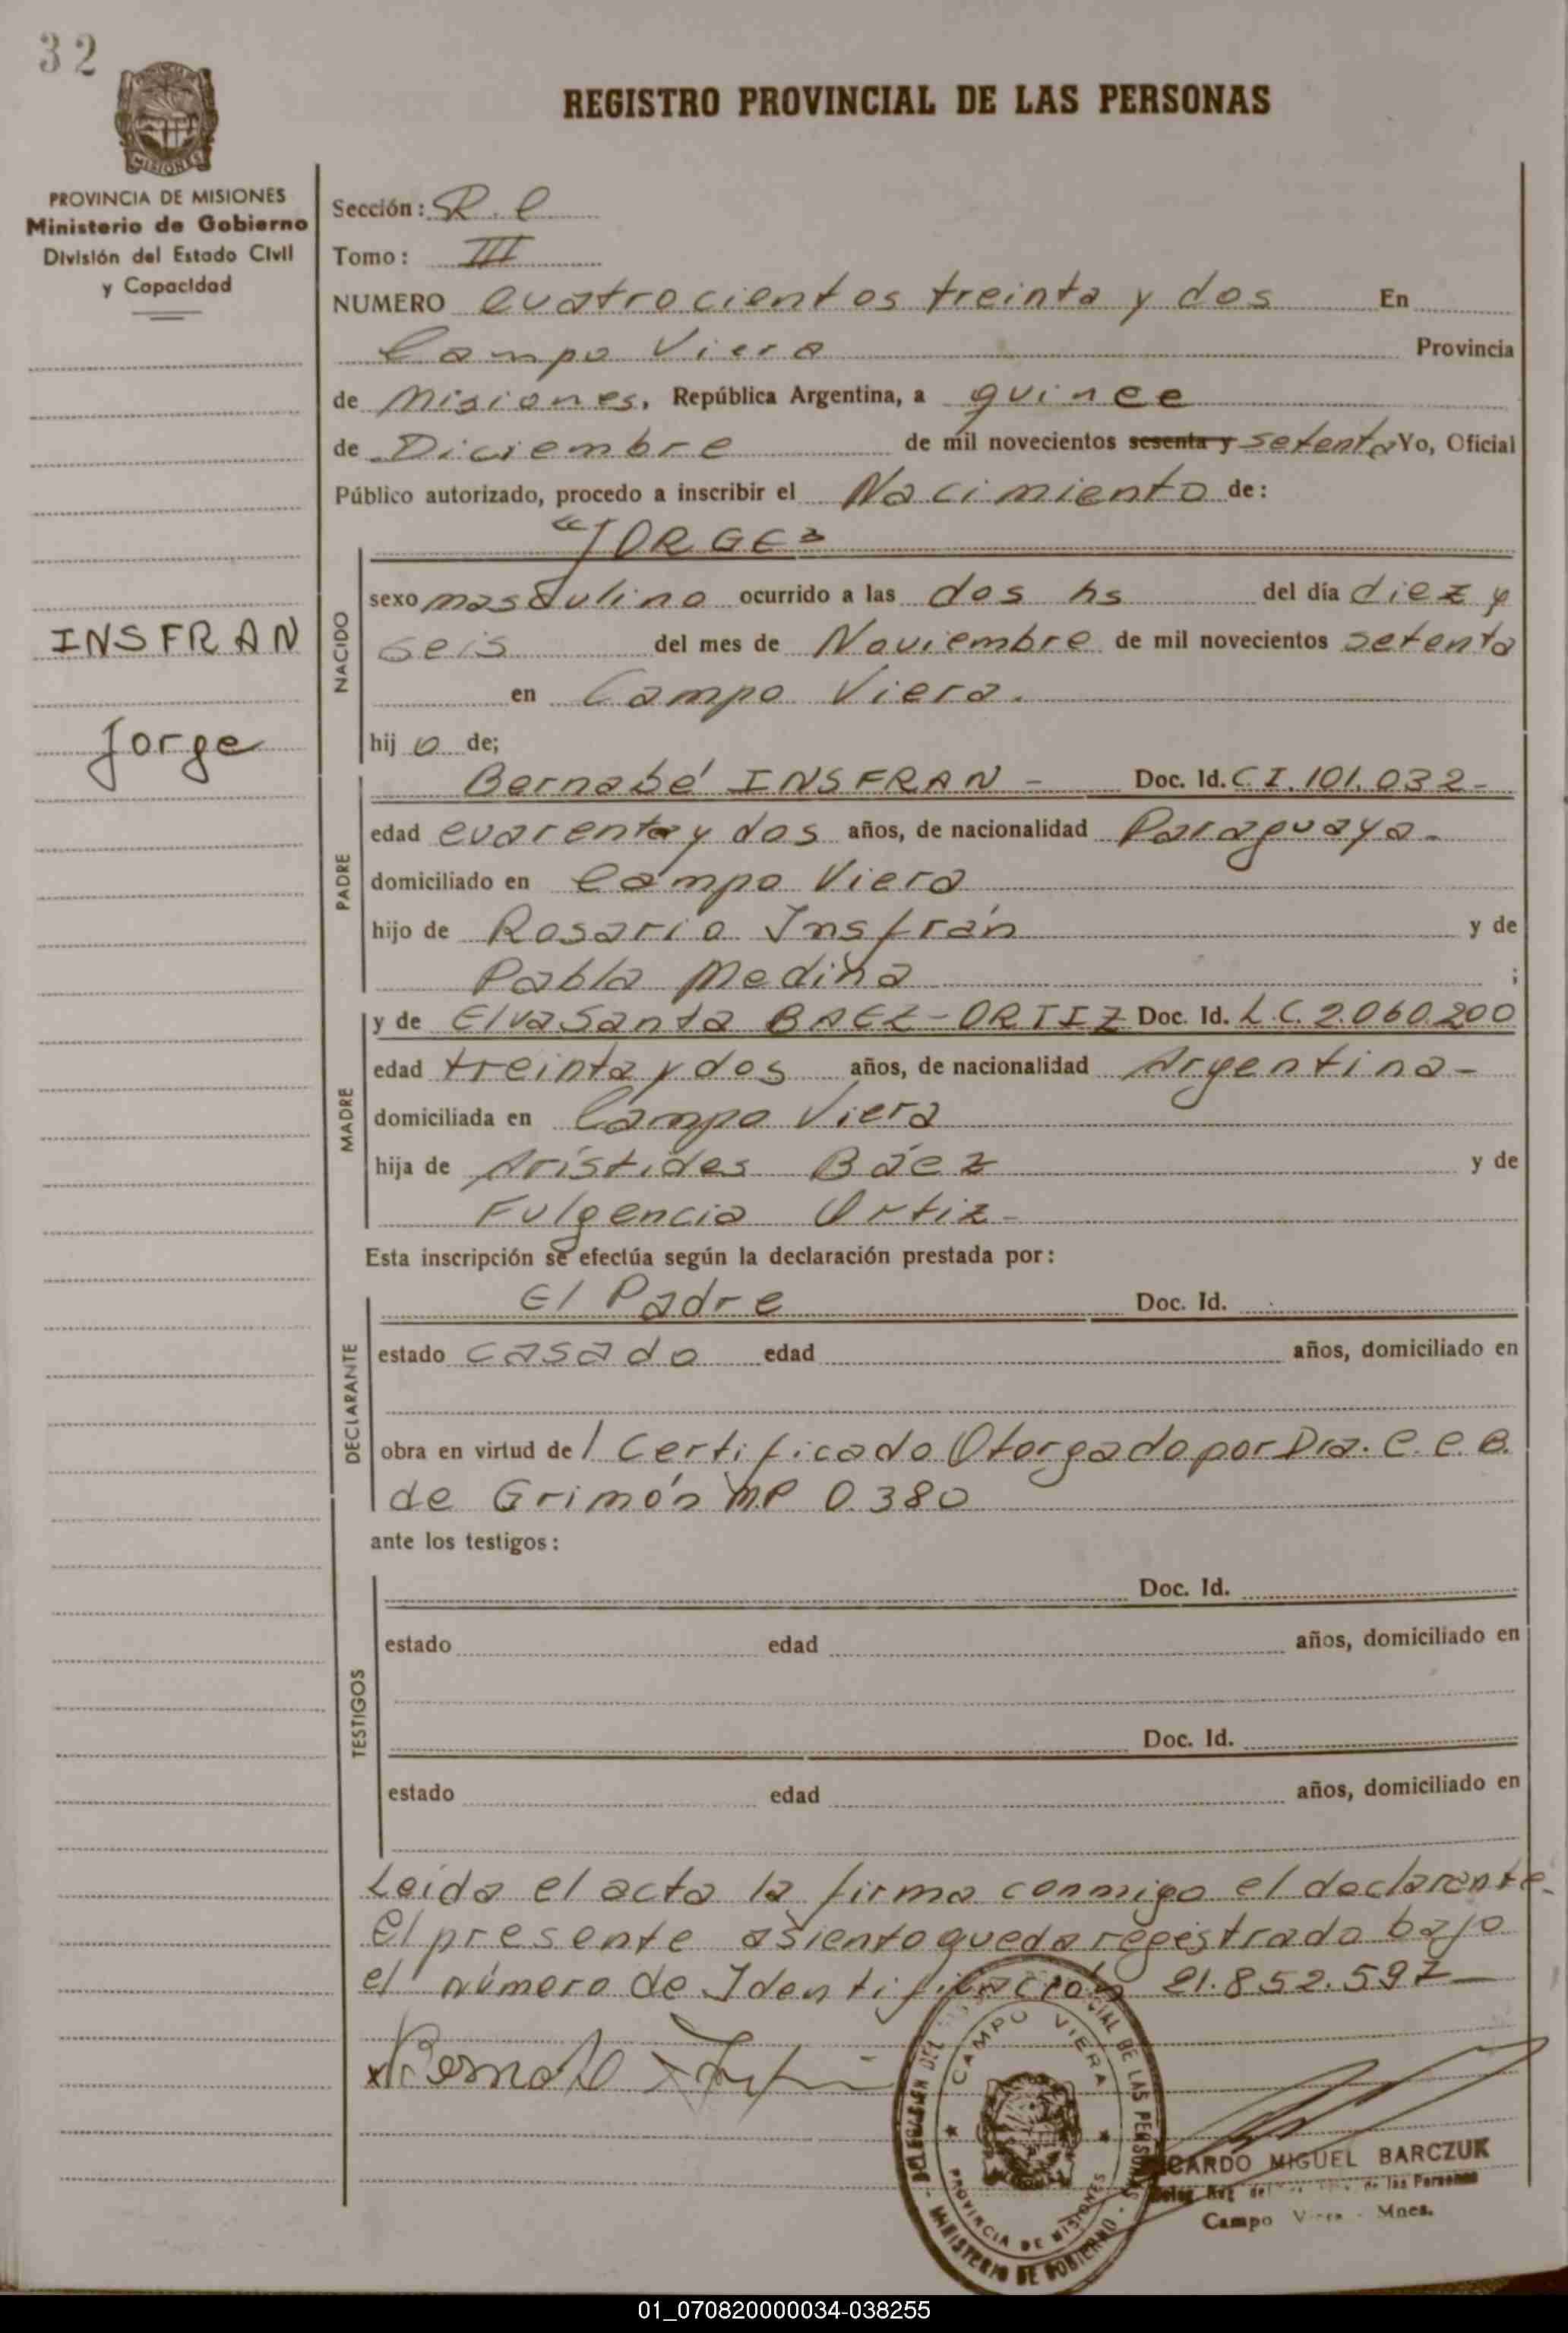 32
MISIONES
REGISTRO PROVINCIAL DE LAS PERSONAS
PROVINCIA DE MISIONES
Ministerio de Gobierno
División del Estado Civil
y Capacidad
INSFRAN
Jorge
Sección: R.C
Tomo: III
NUMERO Cuatrocientos treinta y dos En
Campo Viera Provincia
de Misiones, República Argentina, a quince
de Diciembre de mil novecientos sesenta y setenta Yo, Oficial
Público autorizado, procedo a inscribir el Nacimiento de:
"JORGE"
NACIDO
sexo masculino ocurrido a las dos hs del día diez y
seis del mes de Noviembre de mil novecientos setenta
en Campo Viera.
hij o de;
PADRE
Bernabé INSFRAN - Doc. Id. C I. 101.032-
edad cuarenta y dos años, de nacionalidad Paraguaya-
domiciliado en Campo Viera
hijo de Rosario Insfrán y de
Pabla Medina ;
MADRE
y de Elva Santa BAEZ-ORTIZ Doc. Id. L.C. 2.060.200
edad treinta y dos años, de nacionalidad Argentina-
domiciliada en Campo Viera
hija de Arístides Báez y de
Fulgencia Ortiz-
Esta inscripción se efectúa según la declaración prestada por:
DECLARANTE
El Padre Doc. Id.
estado casado edad años, domiciliado en
obra en virtud de 1 Certificado Otorgado por Dra. C. C. B.
de Grimón M.P 0380
ante los testigos:
TESTIGOS
Doc. Id.
estado edad años, domiciliado en
Doc. Id.
estado edad años, domiciliado en
Leída el acta la firma conmigo el declarante.
El presente asiento queda registrado bajo
el número de Identificación 21.852.597-
CAMPO VIERA
PROVINCIA DE MISIONES
DELEGACION DEL DE LAS PERSONAS
MINISTERIO DE GOBIERNO
CARDO MIGUEL BARCZUK
de las Personas
Campo Viera - Mnes.
01_070820000034-038255